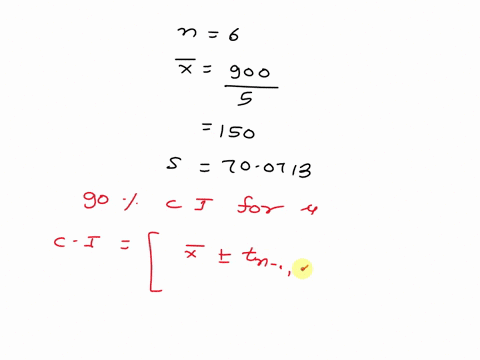 n = 6
x̄ = 900
5
= 150
S = 70.0713
90 % C I for μ
C-I = [ x̄ ± tn-1,